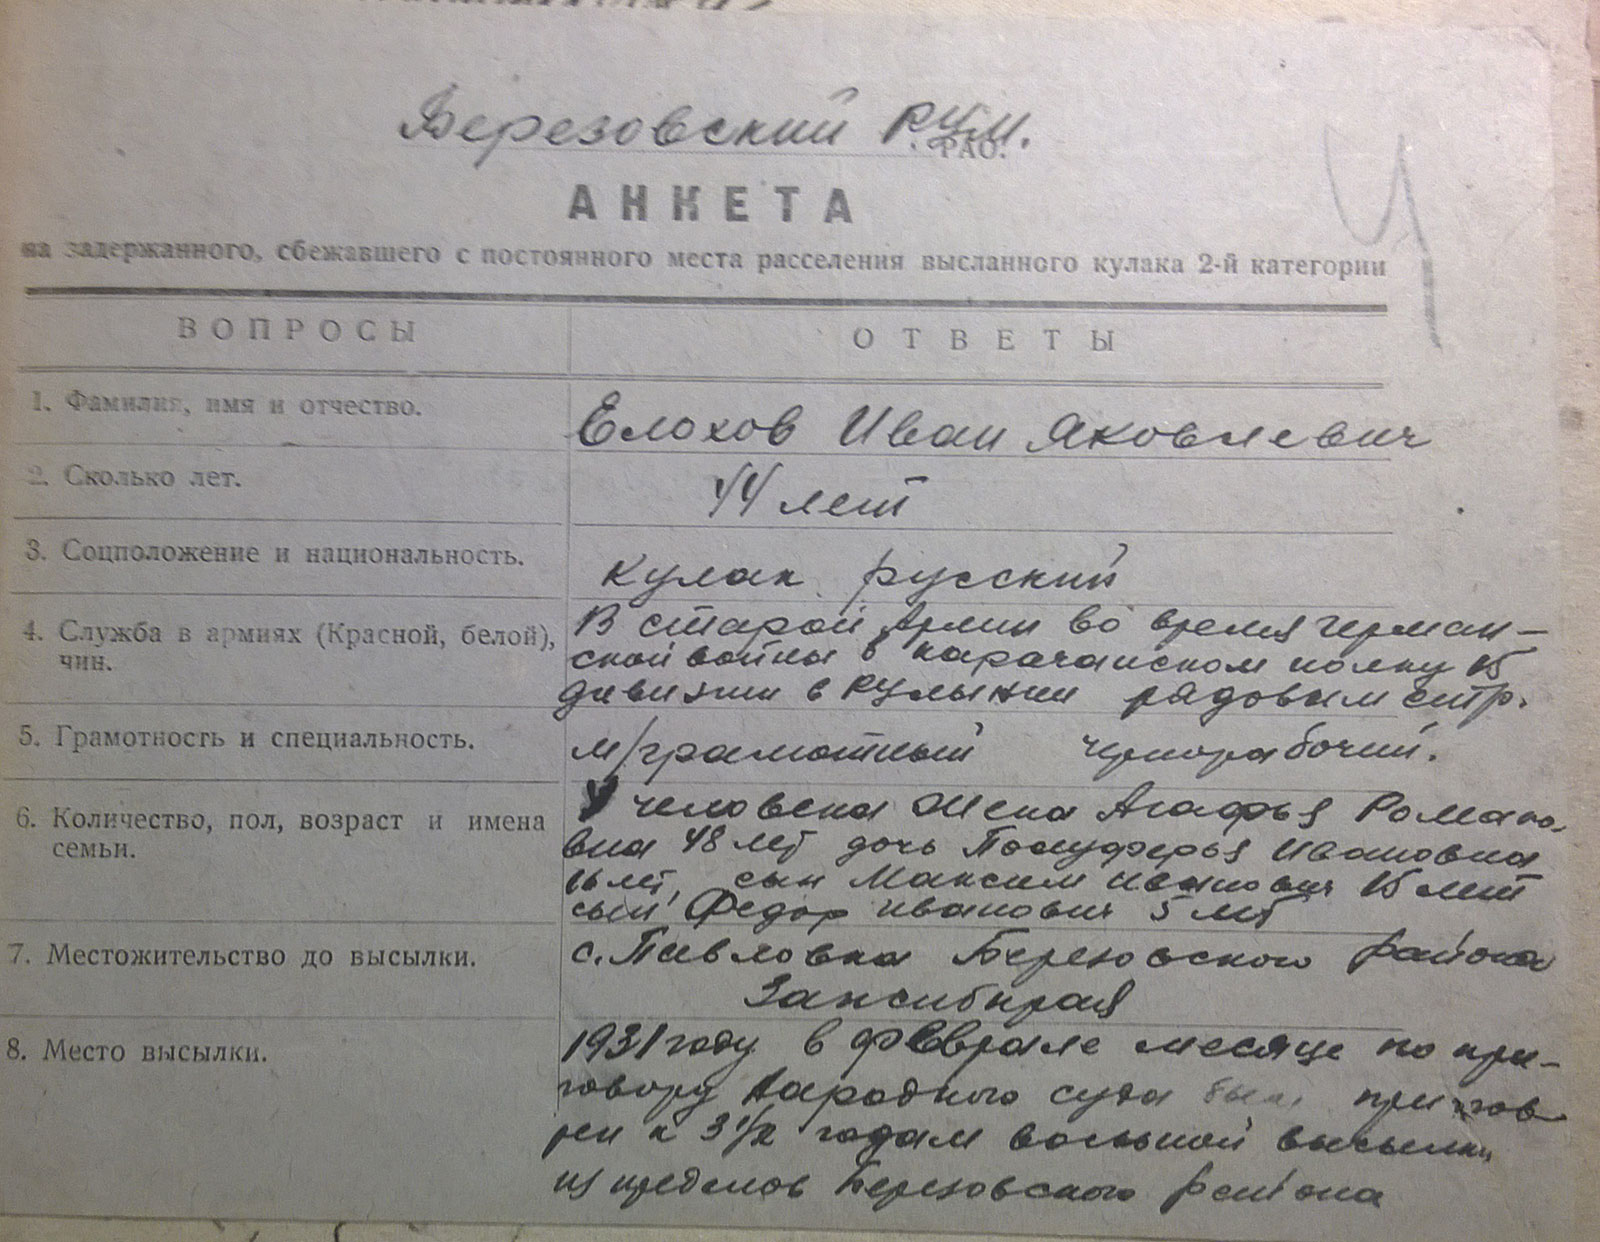 Березовский РУМ.
РАО.
АНКЕТА
на задержанного, сбежавшего с постоянного места расселения высланного кулака 2-й категории
ВОПРОСЫ
ОТВЕТЫ
1. Фамилия, имя и отчество.
Елохов Иван Яковлевич
2. Сколько лет.
44 лет
3. Соцположение и национальность.
кулак русский
4. Служба в армиях (Красной, белой), чин.
В старой Армии во время герман-
ской войны в карачанском полку 15
дивизии в Румынии рядовым стр.
5. Грамотность и специальность.
м/грамотный чернорабочий.
6. Количество, пол, возраст и имена
семьи.
4 человека Жена Агафья Романо-
вна 48 лет дочь Ивановна
16 лет, сын Максим Иванович 15 лет
сын Федор Иванович 5 лет
7. Местожительство до высылки.
с. Павловка Березовского района
Запсибкрая
8. Место высылки.
1931 году в феврале месяце по при-
говору Народного суда был пригов
рен к 3 1/2 годам вольной высылки
из пределов Березовского района